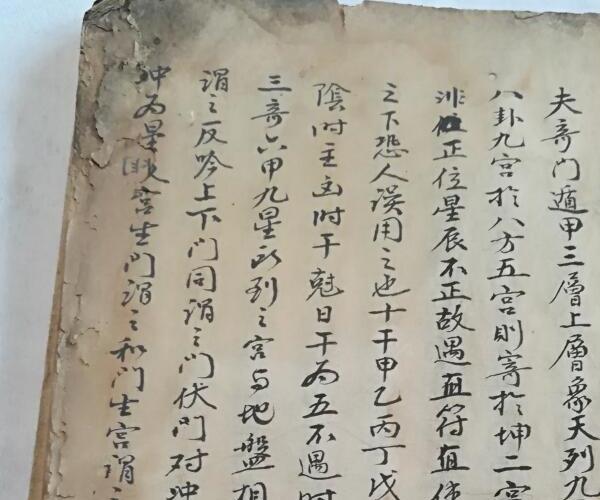 夫奇门遁甲三層上層象天列九
八卦九宫於八方五宫則寄於坤二宫
非位正位星辰不正故遇直符直使
之下恐人误用之也十干甲乙丙丁戊
陰时主凶时干尅日干为五不遇时
三奇六甲九星所到之宫与地盤相
谓之反吟上下门同谓之门伏门对冲
冲为星门宫生门谓之和门生宫谓之